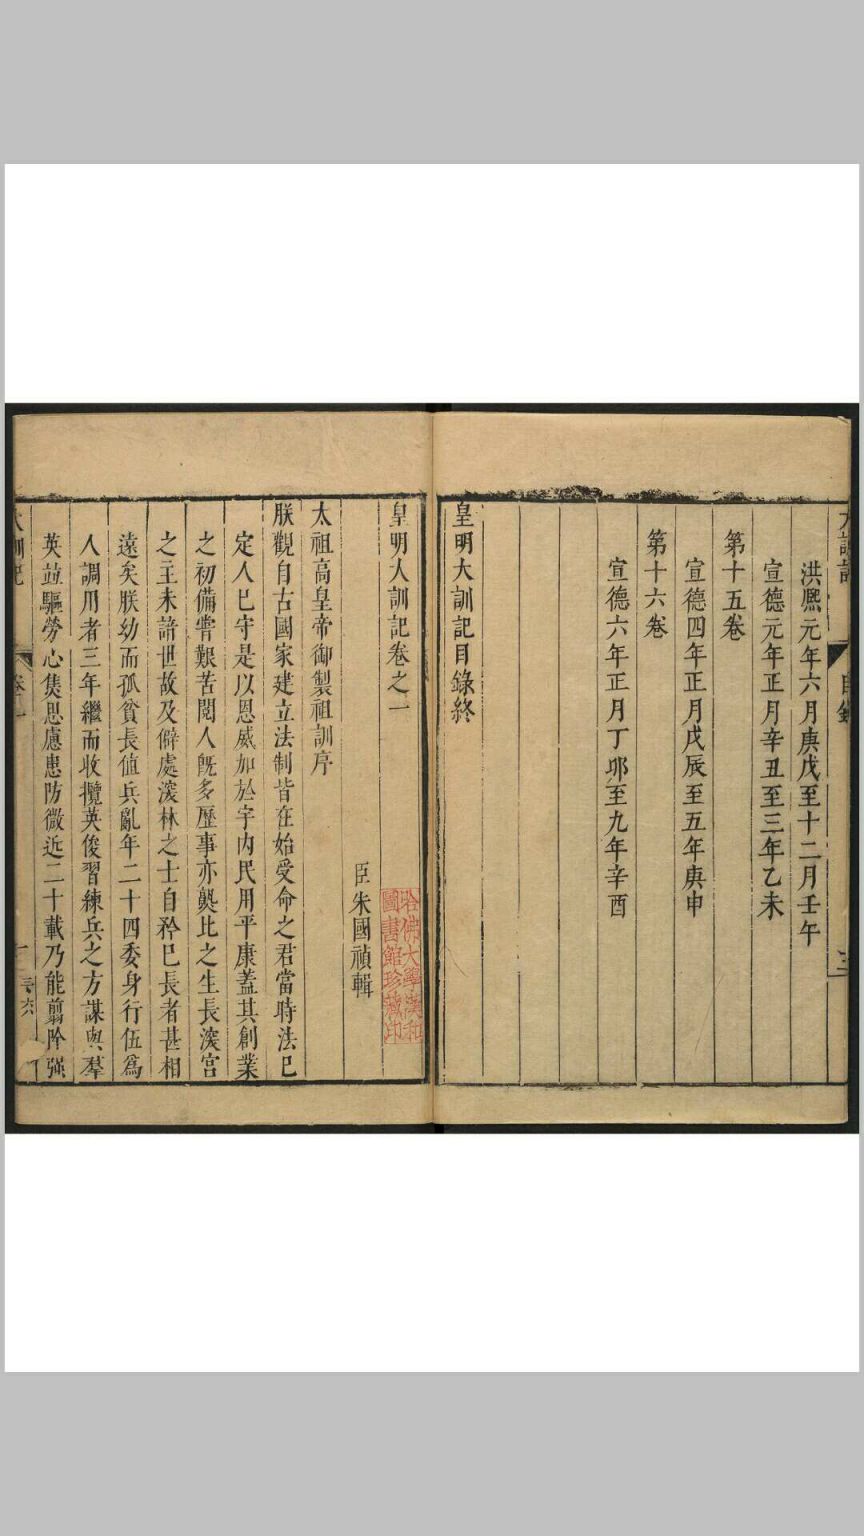 洪熙元年六月庚戊至十二月壬午
宣德元年正月辛丑至三年乙未
第十五卷
宣德四年正月戊辰至五年庚申
第十六卷
宣德六年正月丁夘至九年辛酉
皇明大訓記目錄終
皇明大訓記卷之一
哈佛大學漢和
圖書館珍藏印
臣朱國禎輯
太祖高皇帝御製祖訓序
朕觀自古國家建立法制皆在始受命之君當時法已
定人已守是以恩威加於宇內民用平康蓋其創業
之初備嘗艱苦閱人旣多歷事亦熟比之生長深宮
之主未諳世故及僻處深林之士自矜已長者甚相
遠矣朕幼而孤貧長值兵亂年二十四委身行伍爲
人調用者三年繼而收攬英俊習練兵之方謀與羣
英竝驅勞心焦思慮患防微近二十載乃能翦除强